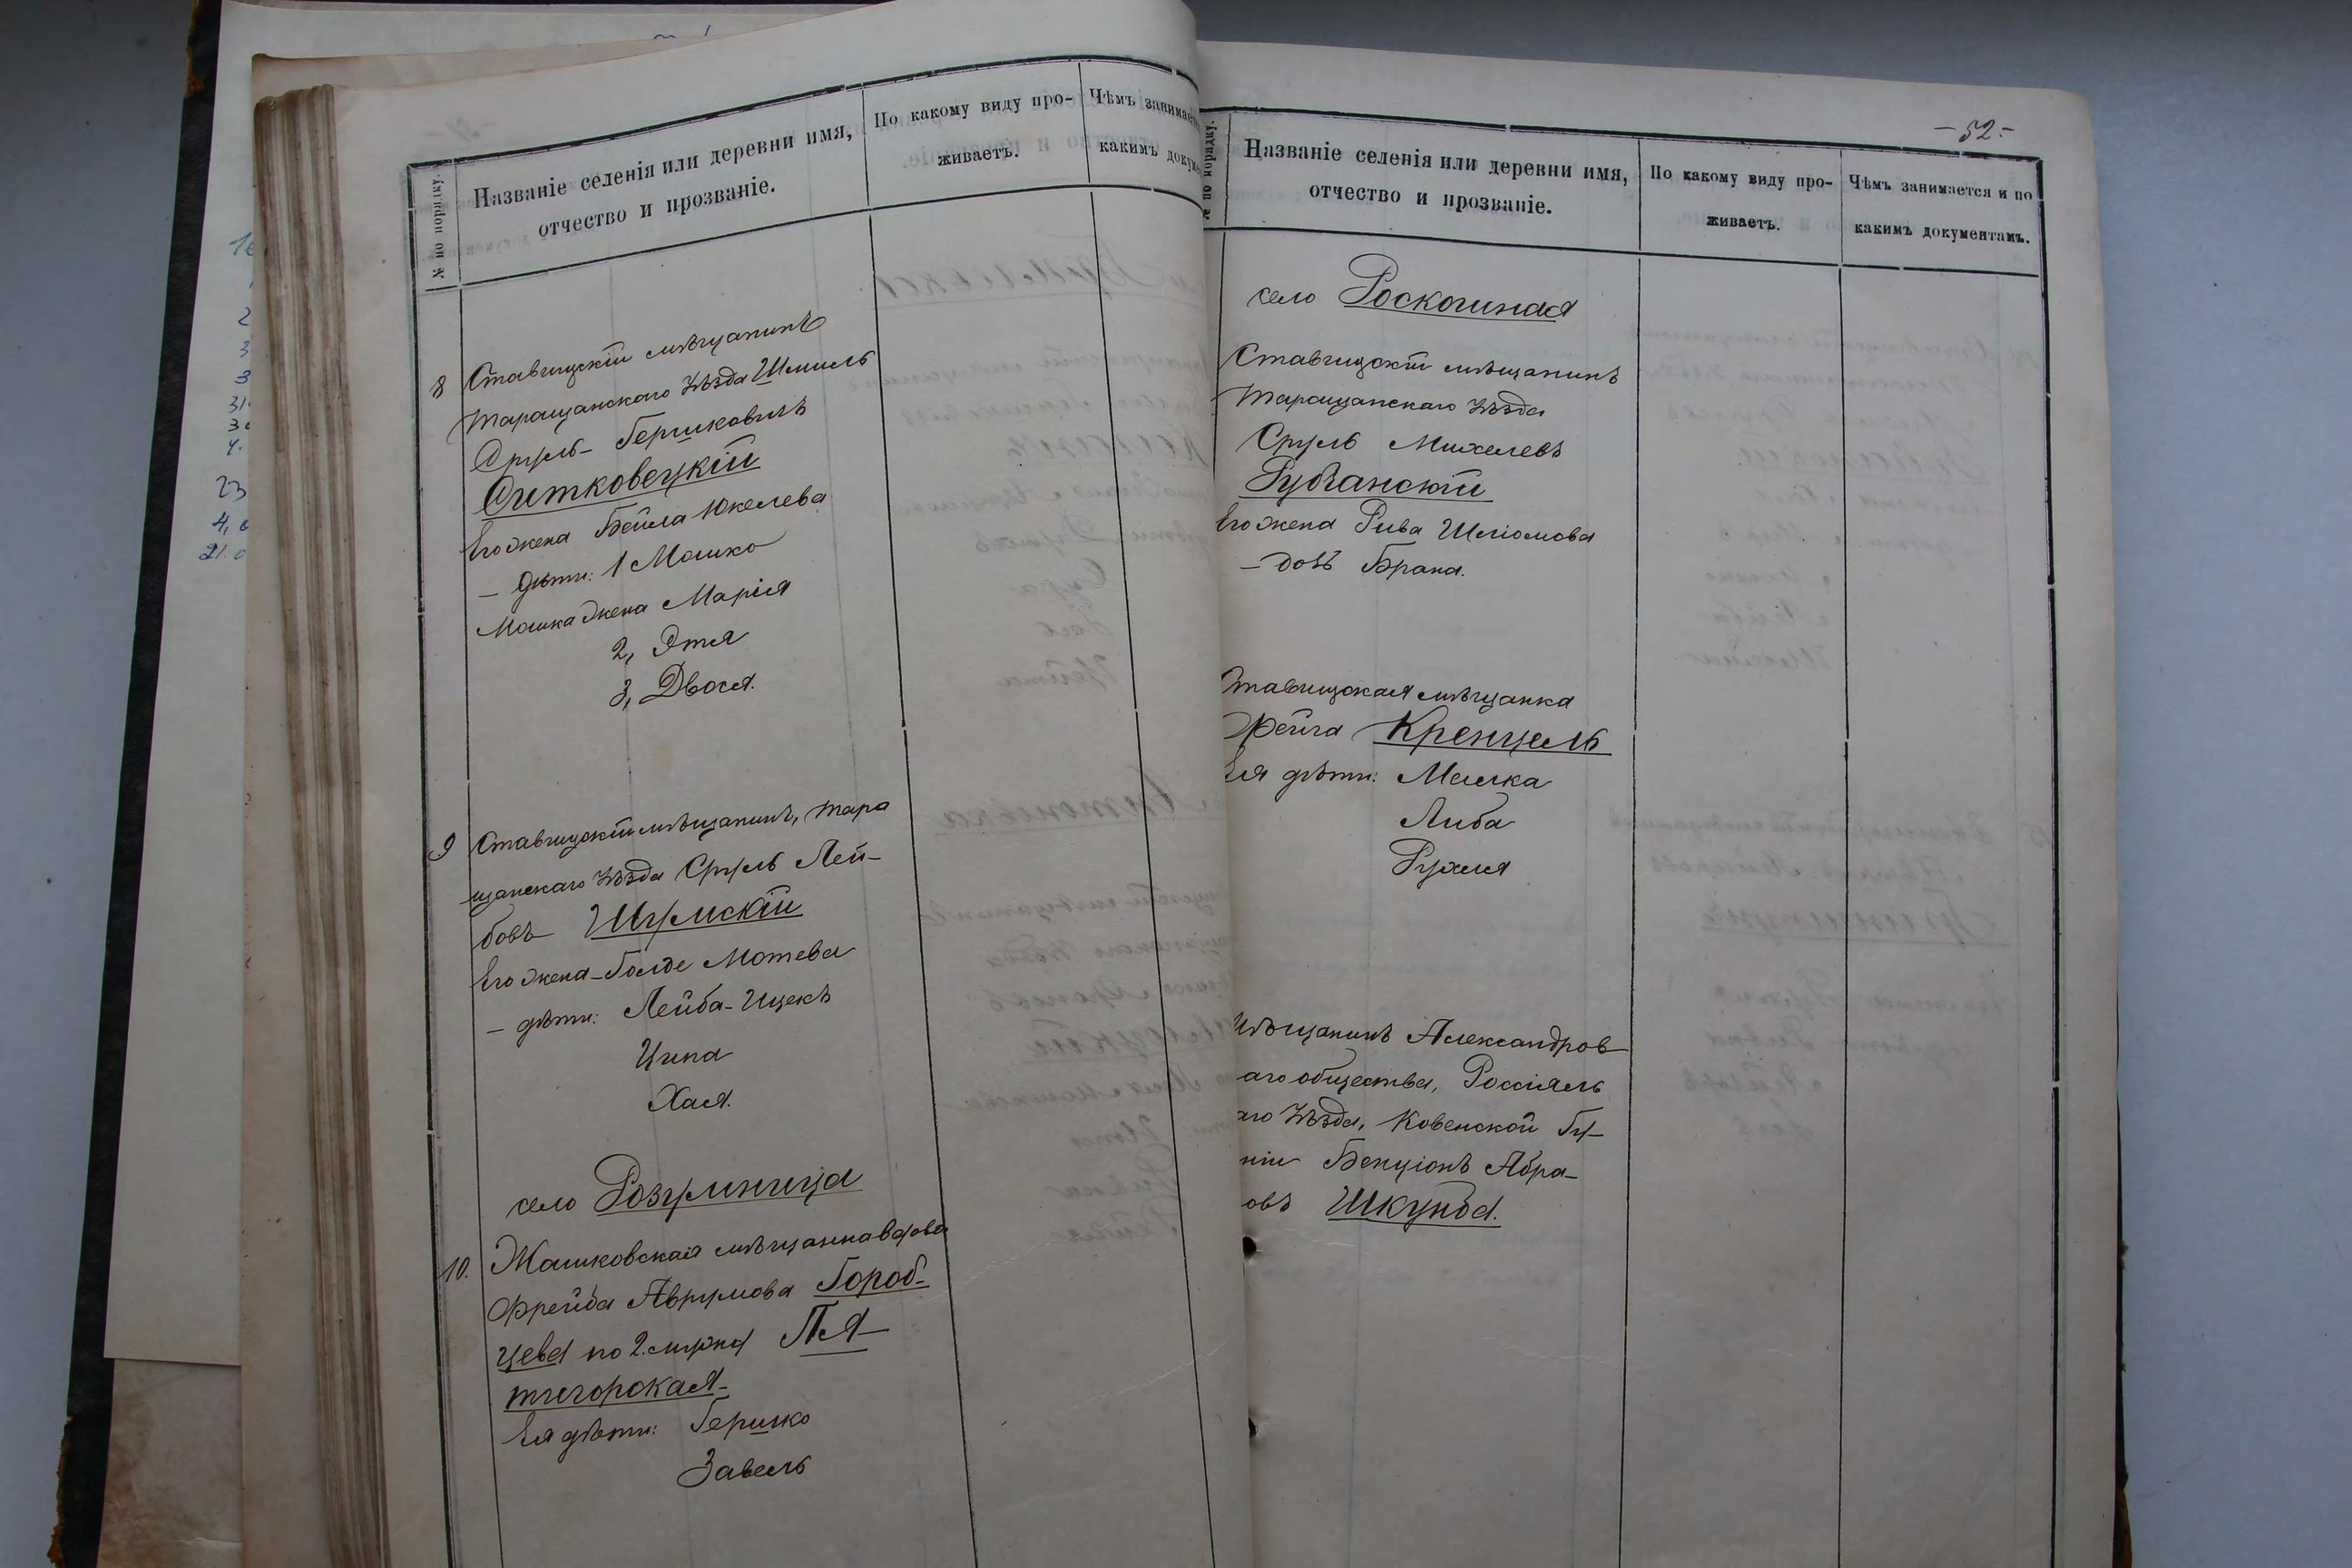 № по порядку.
Названіе селенія или деревни имя,
отчество и прозваніе.
По какому виду про-
живаетъ.
Чѣмъ занимает
какимъ докуме
8
Ставищскій мѣщанинъ
Таращанскаго уѣзда Шмиль
Сруль-Гершковичъ
Ситковецкій
Его жена Бейла Юкелева
— дѣти: 1 Мошко
Мошка жена Марія
2, Этя
3, Двося.
9
Ставищскій мѣщанинъ, Тара
щанскаго уѣзда Сруль Лей-
бовъ Шумскій
Его жена-Голде Мотева
— дѣти: Лейба-Ицекъ
Ципа
Хая.
село Розумница
10.
Жашковская мѣщанка вдова
Фрейда Аврумова Город-
цева по 2. мужу Пя-
тигорская-
Ея дѣти: Гершко
Завель
-52-
№ по порядку.
Названіе селенія или деревни имя,
отчество и прозваніе.
По какому виду про-
живаетъ.
Чѣмъ занимается и по
какимъ документамъ.
село Роскошная
Ставищскій мѣщанинъ
Таращанскаго уѣзда
Сруль Михелевъ
Рубанскій
Его жена Рива Шліомова
— дочь Брана.
Ставищская мѣщанка
Фейга Кренцель
Ея дѣти: Малка
Либа
Рухля
Мѣщанинъ Александров
аго общества, Россіяль
аго уѣзда, Ковенской Гу-
ніи Бенціонъ Абра-
овъ Шкундa.